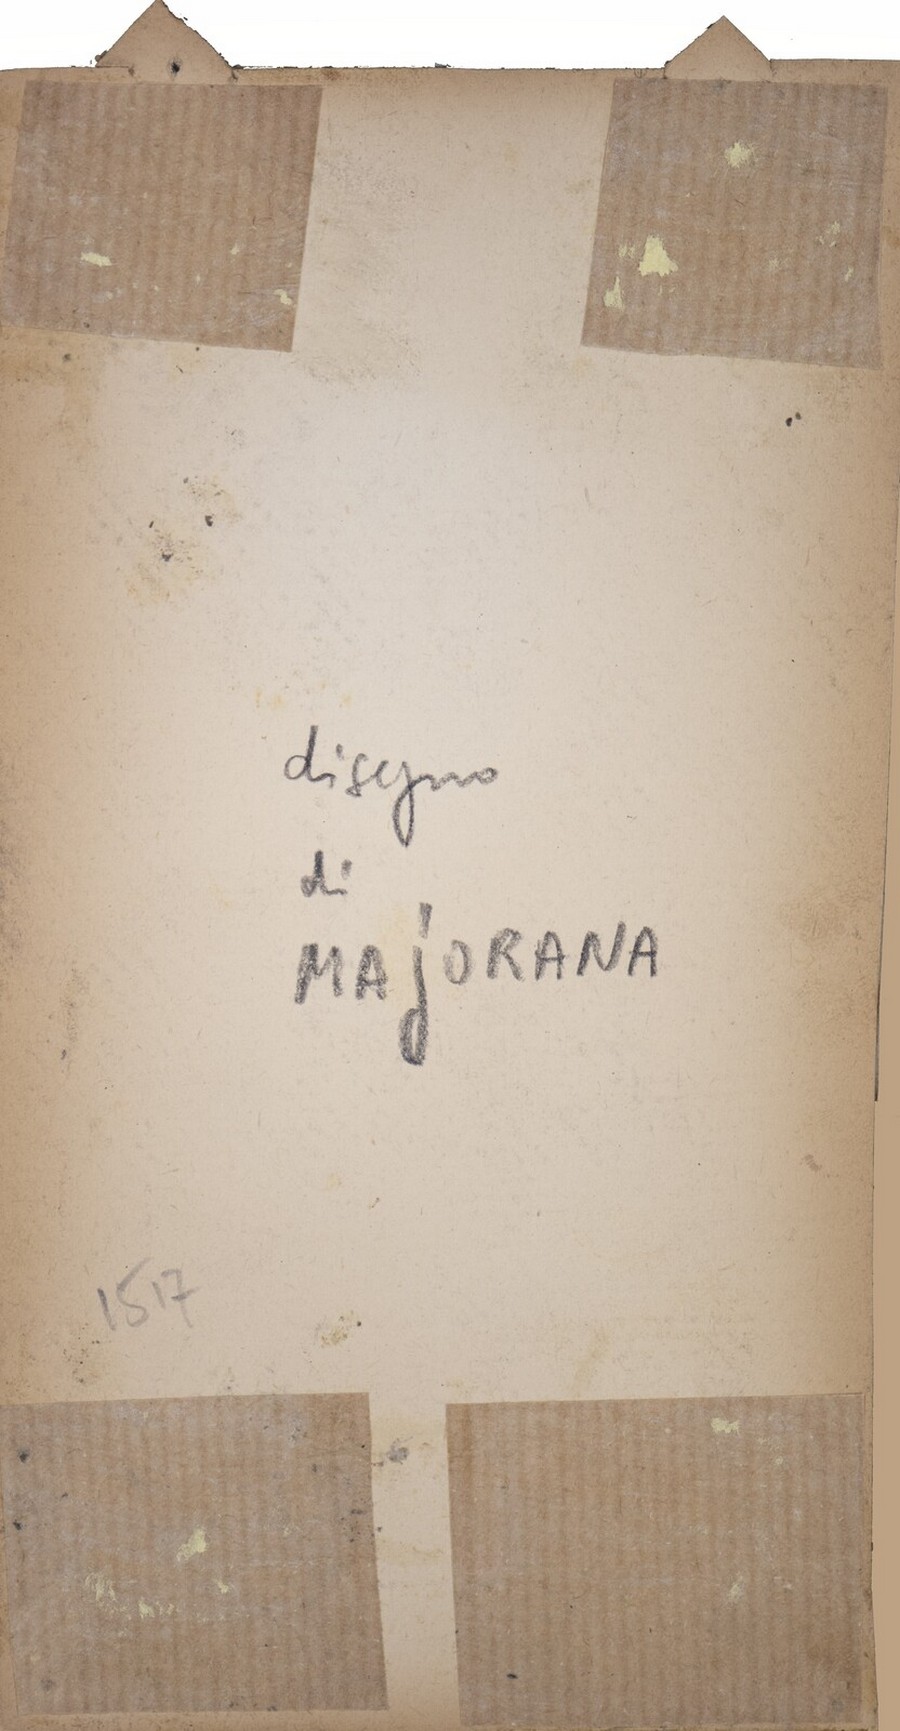 disegno
di
MAjORANA
1517